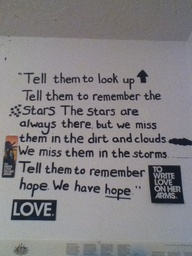 "Tell them to look up
Tell them to remember the
Stars. The stars are
always there, but we miss
them in the dirt and clouds
We miss them in the storms.
Tell them to remember
hope. We have hope"
TO
WRITE
LOVE
ON HER
ARMS.
LOVE.